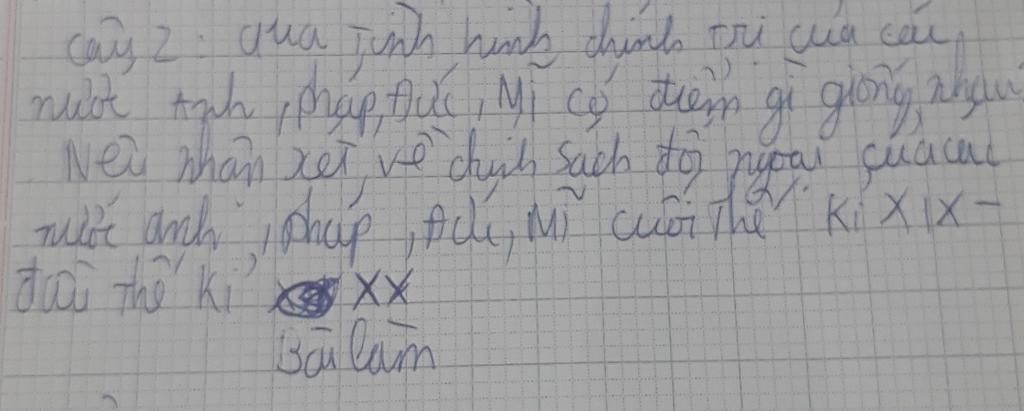 câu 2: qua tình hình chính trị của các
nước Anh, Pháp, Đức, Mĩ có điểm gì giống nhau
Nêu nhận xét về chính sách đối ngoại của các
nước anh, pháp, Đức, Mĩ cuối thế kỉ XIX -
đầu thế kỉ XX
Bài làm